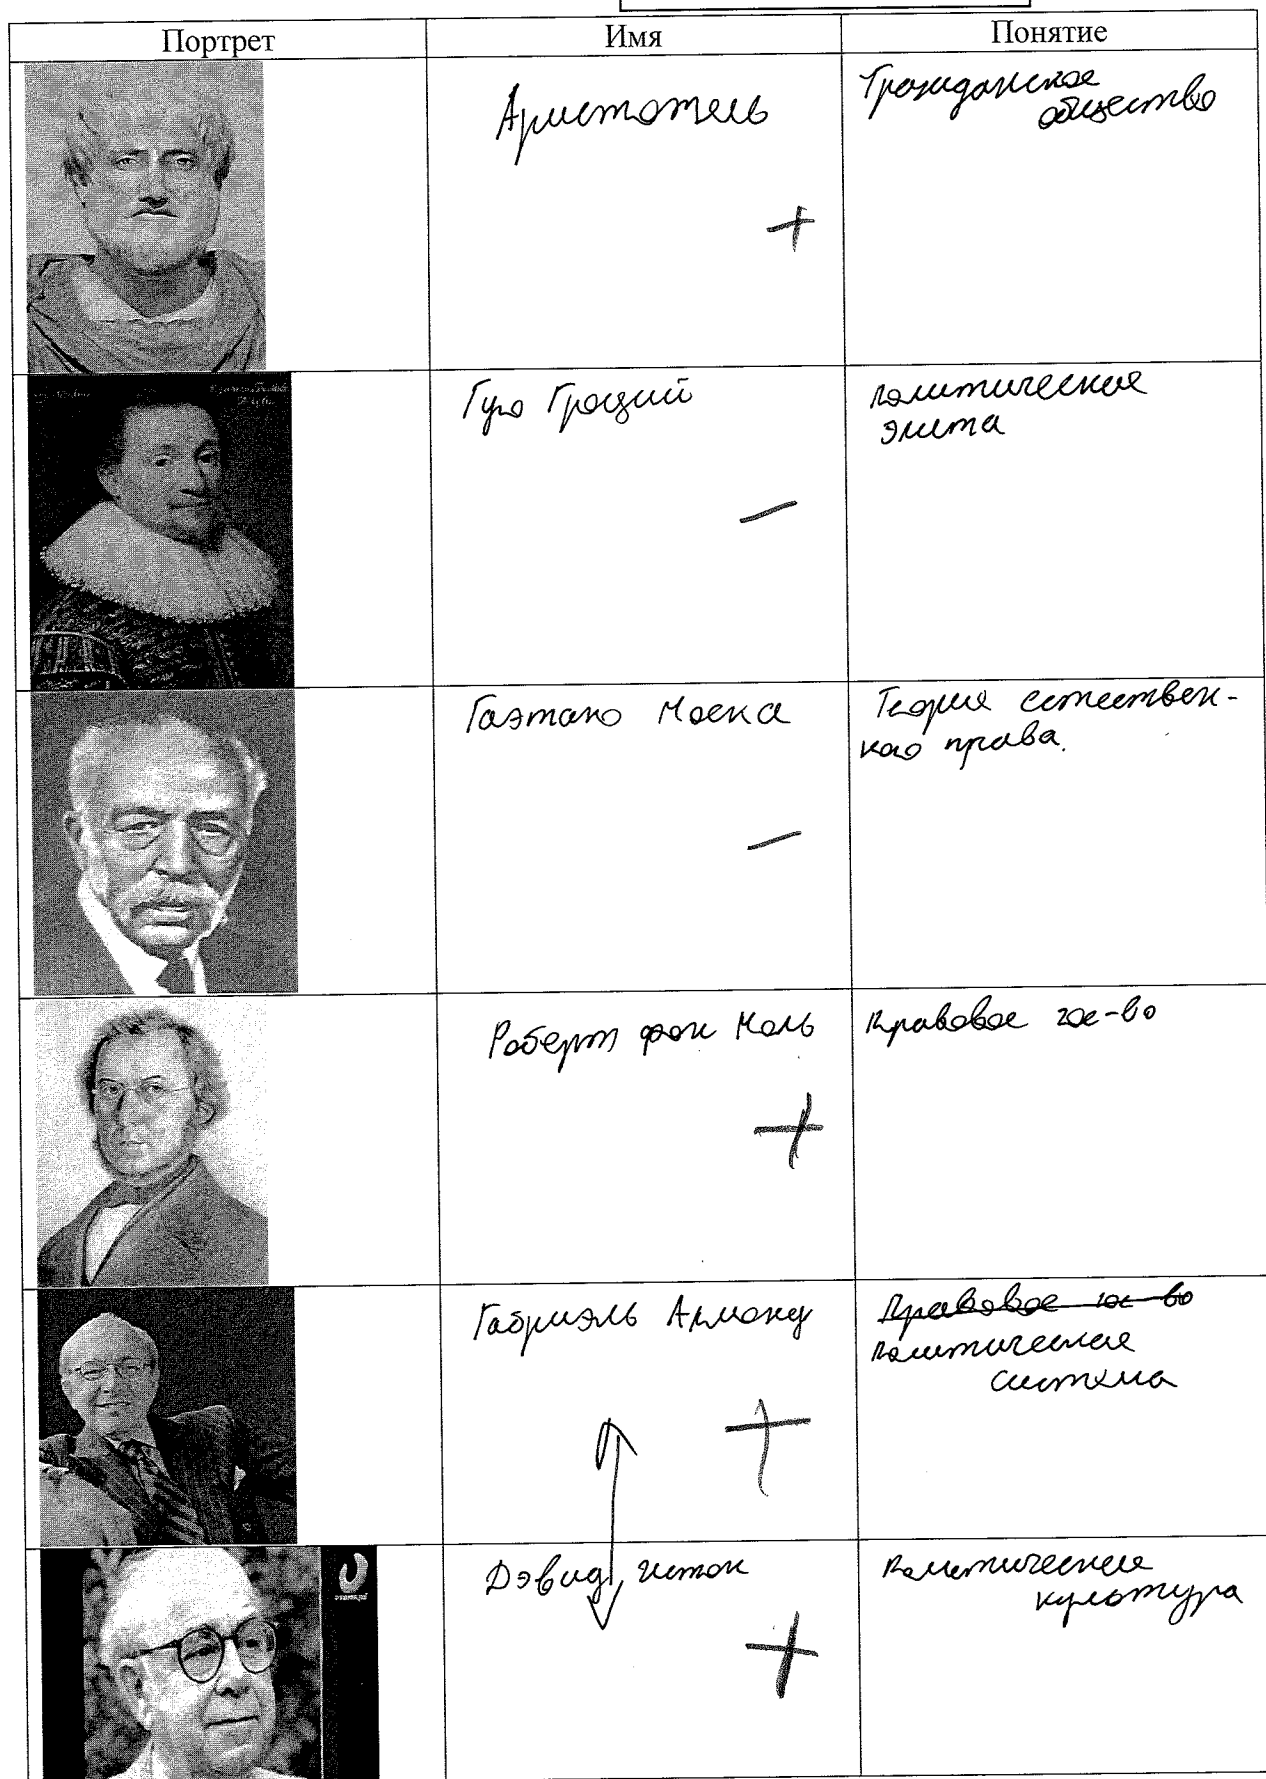 Портрет Имя Понятие
Аристотель
Гражданское
общество
+
Гуго Гроций
политическая
элита
—
Гаэтано Моска
Теория естествен-
ного права.
—
Роберт фон Моль
Правовое гос-во
+
Габриэль Алмонд
Правовое гос-во
политическая
система
+
Дэвид Истон
Политическая
культура
+